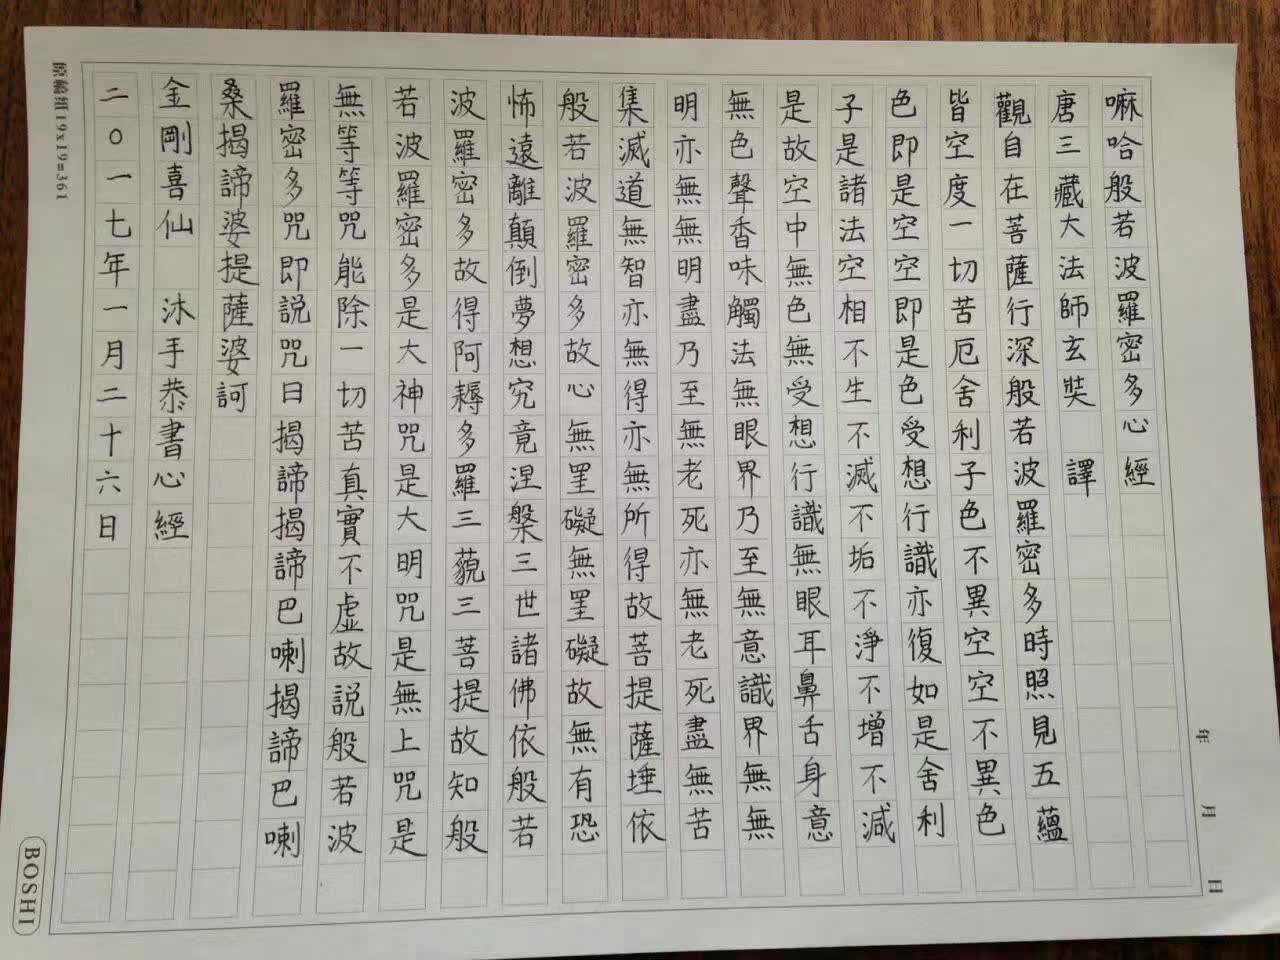 嘛哈般若波羅密多心經
唐三藏大法師玄奘　譯
觀自在菩薩行深般若波羅密多時照見五蘊
皆空度一切苦厄舍利子色不異空空不異色
色即是空空即是色受想行識亦復如是舍利
子是諸法空相不生不滅不垢不淨不增不減
是故空中無色無受想行識無眼耳鼻舌身意
無色聲香味觸法無眼界乃至無意識界無無
明亦無無明盡乃至無老死亦無老死盡無苦
集滅道無智亦無得亦無所得故菩提薩埵依
般若波羅密多故心無罣礙無罣礙故無有恐
怖遠離顛倒夢想究竟涅槃三世諸佛依般若
波羅密多故得阿耨多羅三藐三菩提故知般
若波羅密多是大神咒是大明咒是無上咒是
無等等咒能除一切苦真實不虛故説般若波
羅密多咒即説咒日揭諦揭諦巴喇揭諦巴喇
桑揭諦婆提薩婆訶
金剛喜仙　沐手恭書心經
二〇一七年一月二十六日
原稿纸19x19=361
年　月　日
BOSHI